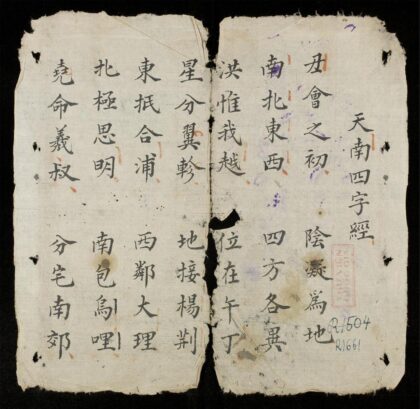 天南四字經
丑會之初 陰凝為地
南北東西 四方各異
洪惟我越 位在午丁
星分翼軫 地接楊荆
東抵合浦 西鄰大理
北極思明 南包烏哩
堯命羲叔 分宅南郊
R.1504
R1661